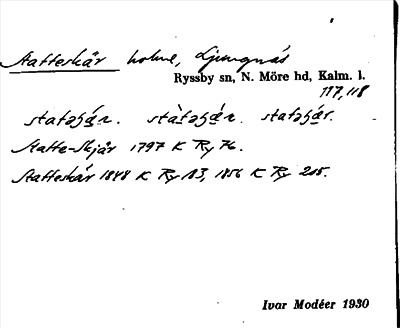 Statteskär holme, Ljungnäs
Ryssby sn, N. Möre hd, Kalm. l.
117,118
Statte-Skjär 1797 K Ry 76.
Statteskär 1848 K Ry 183, 1856 K Ry 205.
Ivar Modéer 1930